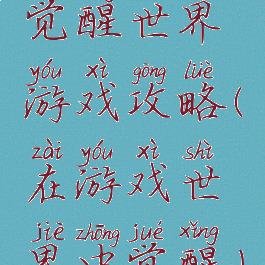 觉醒世界
yóu xì gōng lüè
游戏攻略(
zài yóu xì shì
在游戏世
jiè zhōng jué xǐng
界中觉醒)